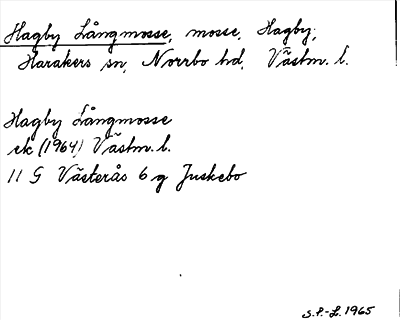 Hagby Långmosse, mosse, Hagby,
Harakers sn, Norrbo hd, Västm. l.
Hagby Långmosse
ek (1964) Västm. l.
11 G Västerås 6 g Juskebo
S.P.-L. 1965